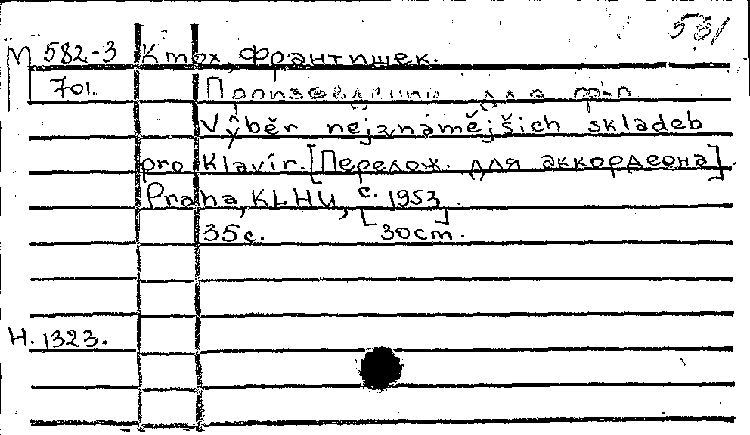 581
М 582-3 Кмох, Франтишек.
701. Произведения для ф-п
Výběr nejznámějších skladeb
pro klavír. [Перелож. для аккордеона].
Praha, KLHU, c. 1953
35 с. [30cm.
Н. 1323.